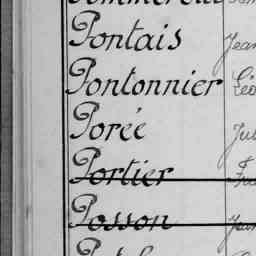 Pontais Jean
Pontonnier Léo
Porée Jul
Portier Fra
Posson